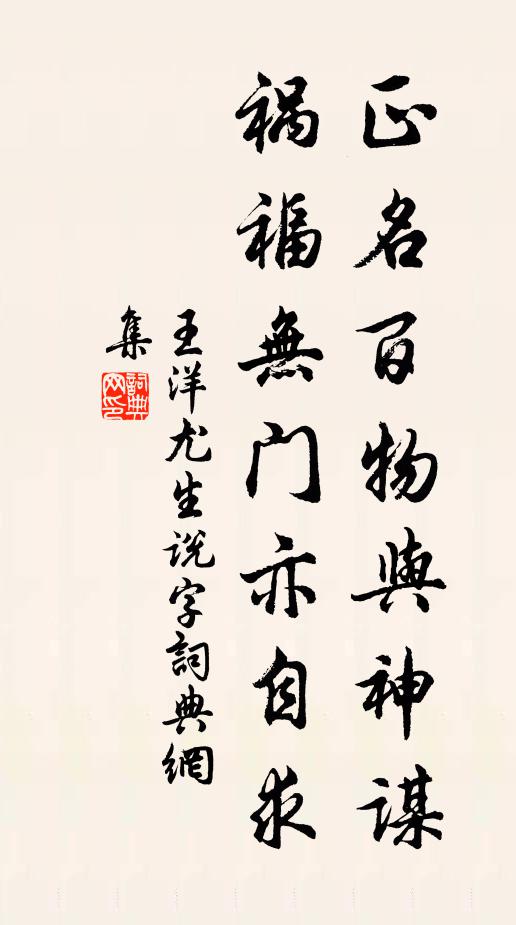 正名百物與神謀
禍福無門亦自求
王洋尤生说字詞典網
集
詞典网印